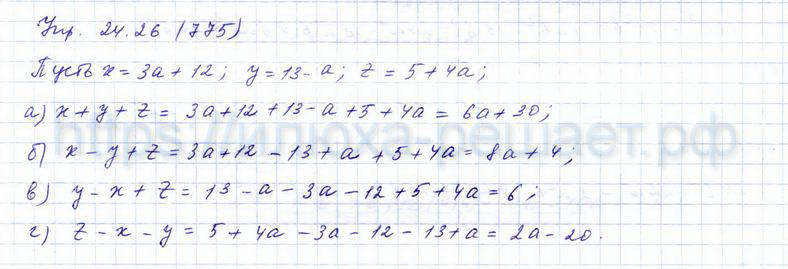 Упр. 24.26 (775)
Пусть x = 3a + 12; y = 13 - a; z = 5 + 4a;
а) x + y + z = 3a + 12 + 13 - a + 5 + 4a = 6a + 30;
https://илюха-решает.рф
б) x - y + z = 3a + 12 - 13 + a + 5 + 4a = 8a + 4;
в) y - x + z = 13 - a - 3a - 12 + 5 + 4a = 6;
г) z - x - y = 5 + 4a - 3a - 12 - 13 + a = 2a - 20.